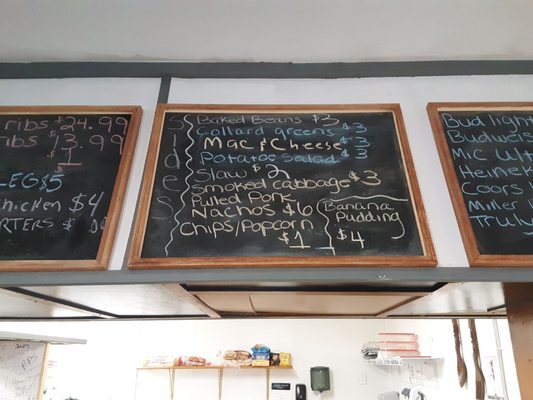 ribs $24.99
ibs $13.99
$1
LEG $5
hicken $4
ARTERS $
Sides
Baked Beans $3
Collard greens $3
Mac & Cheese $3
Potatoe Salad $3
Slaw $2
Smoked cabbage $3
Pulled Pork
Nachos $6
Chips/Popcorn
$1
Banana
Pudding
$4
Bud light
Budweis
Mic Ult
Heinek
Coors
Miller
Truly